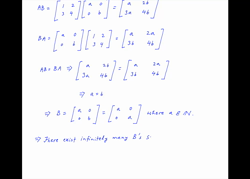 AB = [1 2; 3 4] [a 0; 0 b] = [a 2b; 3a 4b]
BA = [a 0; 0 b] [1 2; 3 4] = [a 2a; 3b 4b]
AB = BA ⇒ [a 2b; 3a 4b] = [a 2a; 3b 4b]
⇒ a = b
⇒ B = [a 0; 0 b] = [a 0; 0 a] where a ∈ N.
⇒ There exist infinitely many B's